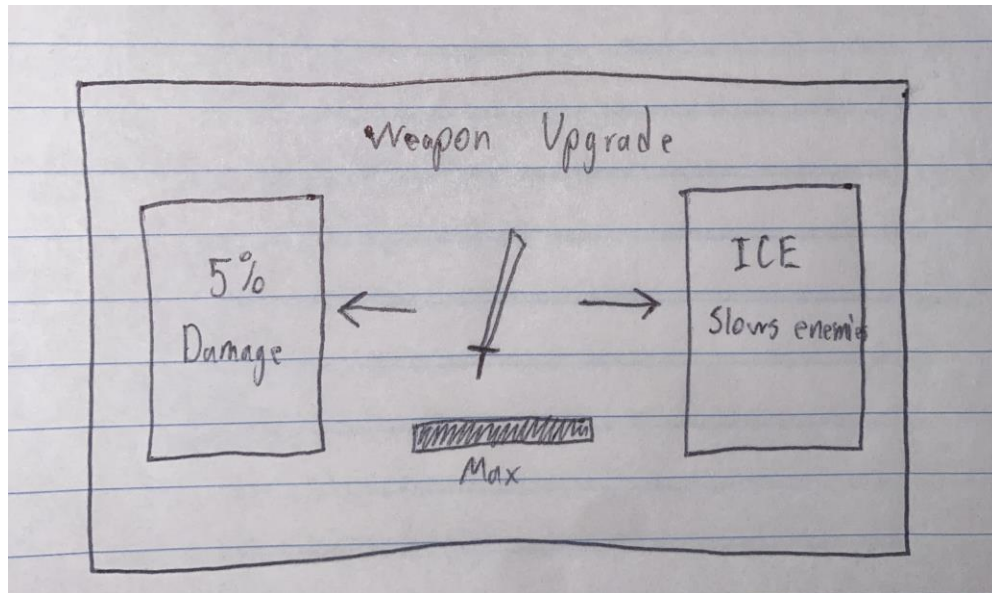 Weapon Upgrade
5%
Damage
ICE
Slows enemies
Max